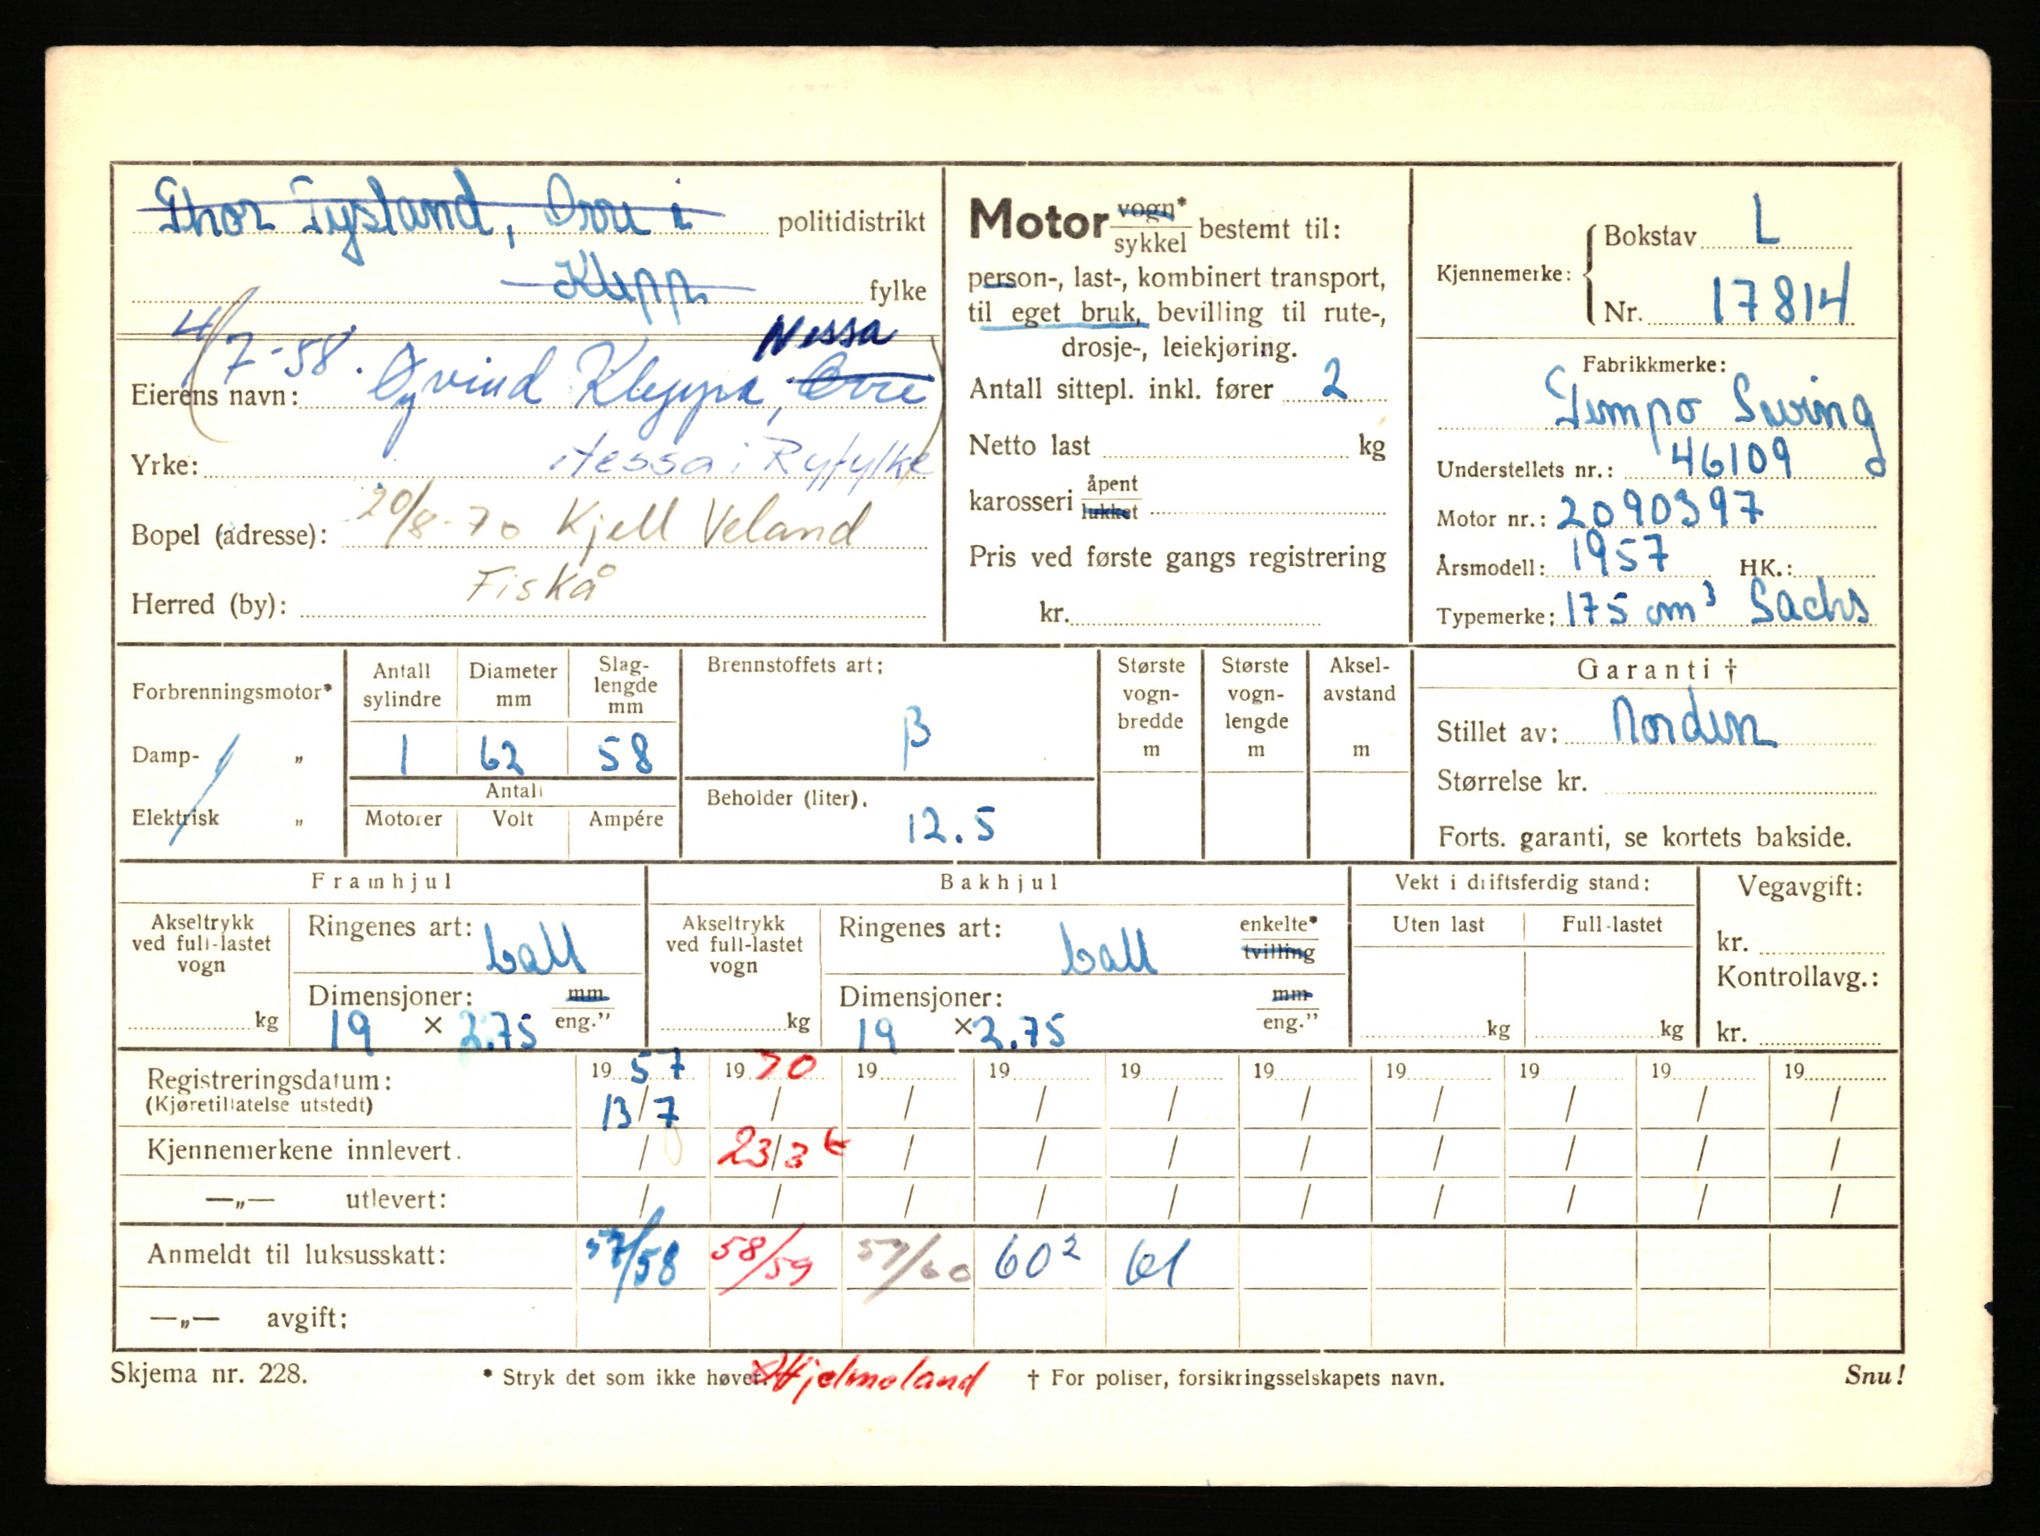 Thor Tysland, Orre i politidistrikt
Klepp fylke
4/7-58. Nessa
Eierens navn: Øyvind Kleppa, Orre
Yrke: Nessa i Ryfylke
Bopel (adresse): 20/8-70 Kjell Veland
Fiskå
Herred (by):
Motor vogn*
sykkel bestemt til:
person-, last-, kombinert transport,
til eget bruk, bevilling til rute-,
drosje-, leiekjøring.
Antall sittepl. inkl. fører 2
Netto last kg
karosseri åpent
lukket
Pris ved første gangs registrering
kr.
Kjennemerke: Bokstav L
Nr. 17814
Fabrikkmerke:
Tempo Swing
Understellets nr.: 46109
Motor nr.: 2090397
Årsmodell: 1957 HK.:
Typemerke: 175 cm³ Sachs
Forbrenningsmotor*
Damp- „
Elektrisk „
Antall sylindre
1
Diameter mm
62
Slag-
lengde
mm
58
Antall
Motorer Volt Ampére
Brennstoffets art:
B
Beholder (liter).
12.5
Største
vogn-
bredde
m
Største
vogn-
lengde
m
Aksel-
avstand
m
Garanti †
Stillet av: Norden
Størrelse kr.
Forts. garanti, se kortets bakside.
Framhjul
Akseltrykk
ved full-lastet
vogn
kg
Ringenes art: ball
Dimensjoner: mm
19 × 2.75 eng.”
Bakhjul
Akseltrykk
ved full-lastet
vogn
kg
Ringenes art: ball enkelte*
tvilling
Dimensjoner: mm
19 × 2.75 eng.”
Vekt i driftsferdig stand:
Uten last Full-lastet
kg kg
Vegavgift:
kr.
Kontrollavg.:
kr.
Registreringsdatum: 19 57 19 70 19 19 19 19 19 19 19 19
(Kjøretillatelse utstedt) 13/7 / / / / / / / / /
Kjennemerkene innlevert. / 23/3 / / / / / / / /
—„— utlevert: / / / / / / / / / /
Anmeldt til luksusskatt: 57/58 58/59 59/60 60² 61
—„— avgift:
Skjema nr. 228. * Stryk det som ikke høver. × Hjelmeland † For poliser, forsikringsselskapets navn. Snu!